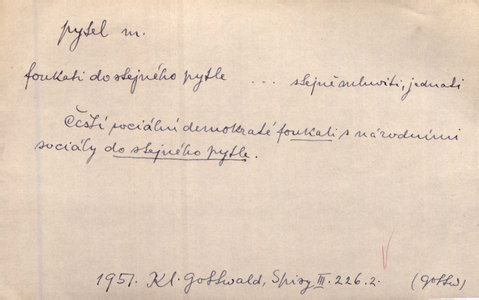 pytel m.
foukati do stejného pytle ... stejně mluviti, jednati
Čeští sociální demokraté foukali s národními
sociály do stejného pytle.
1951. Kl. Gottwald, Spisy III. 226.2. (Gottw)